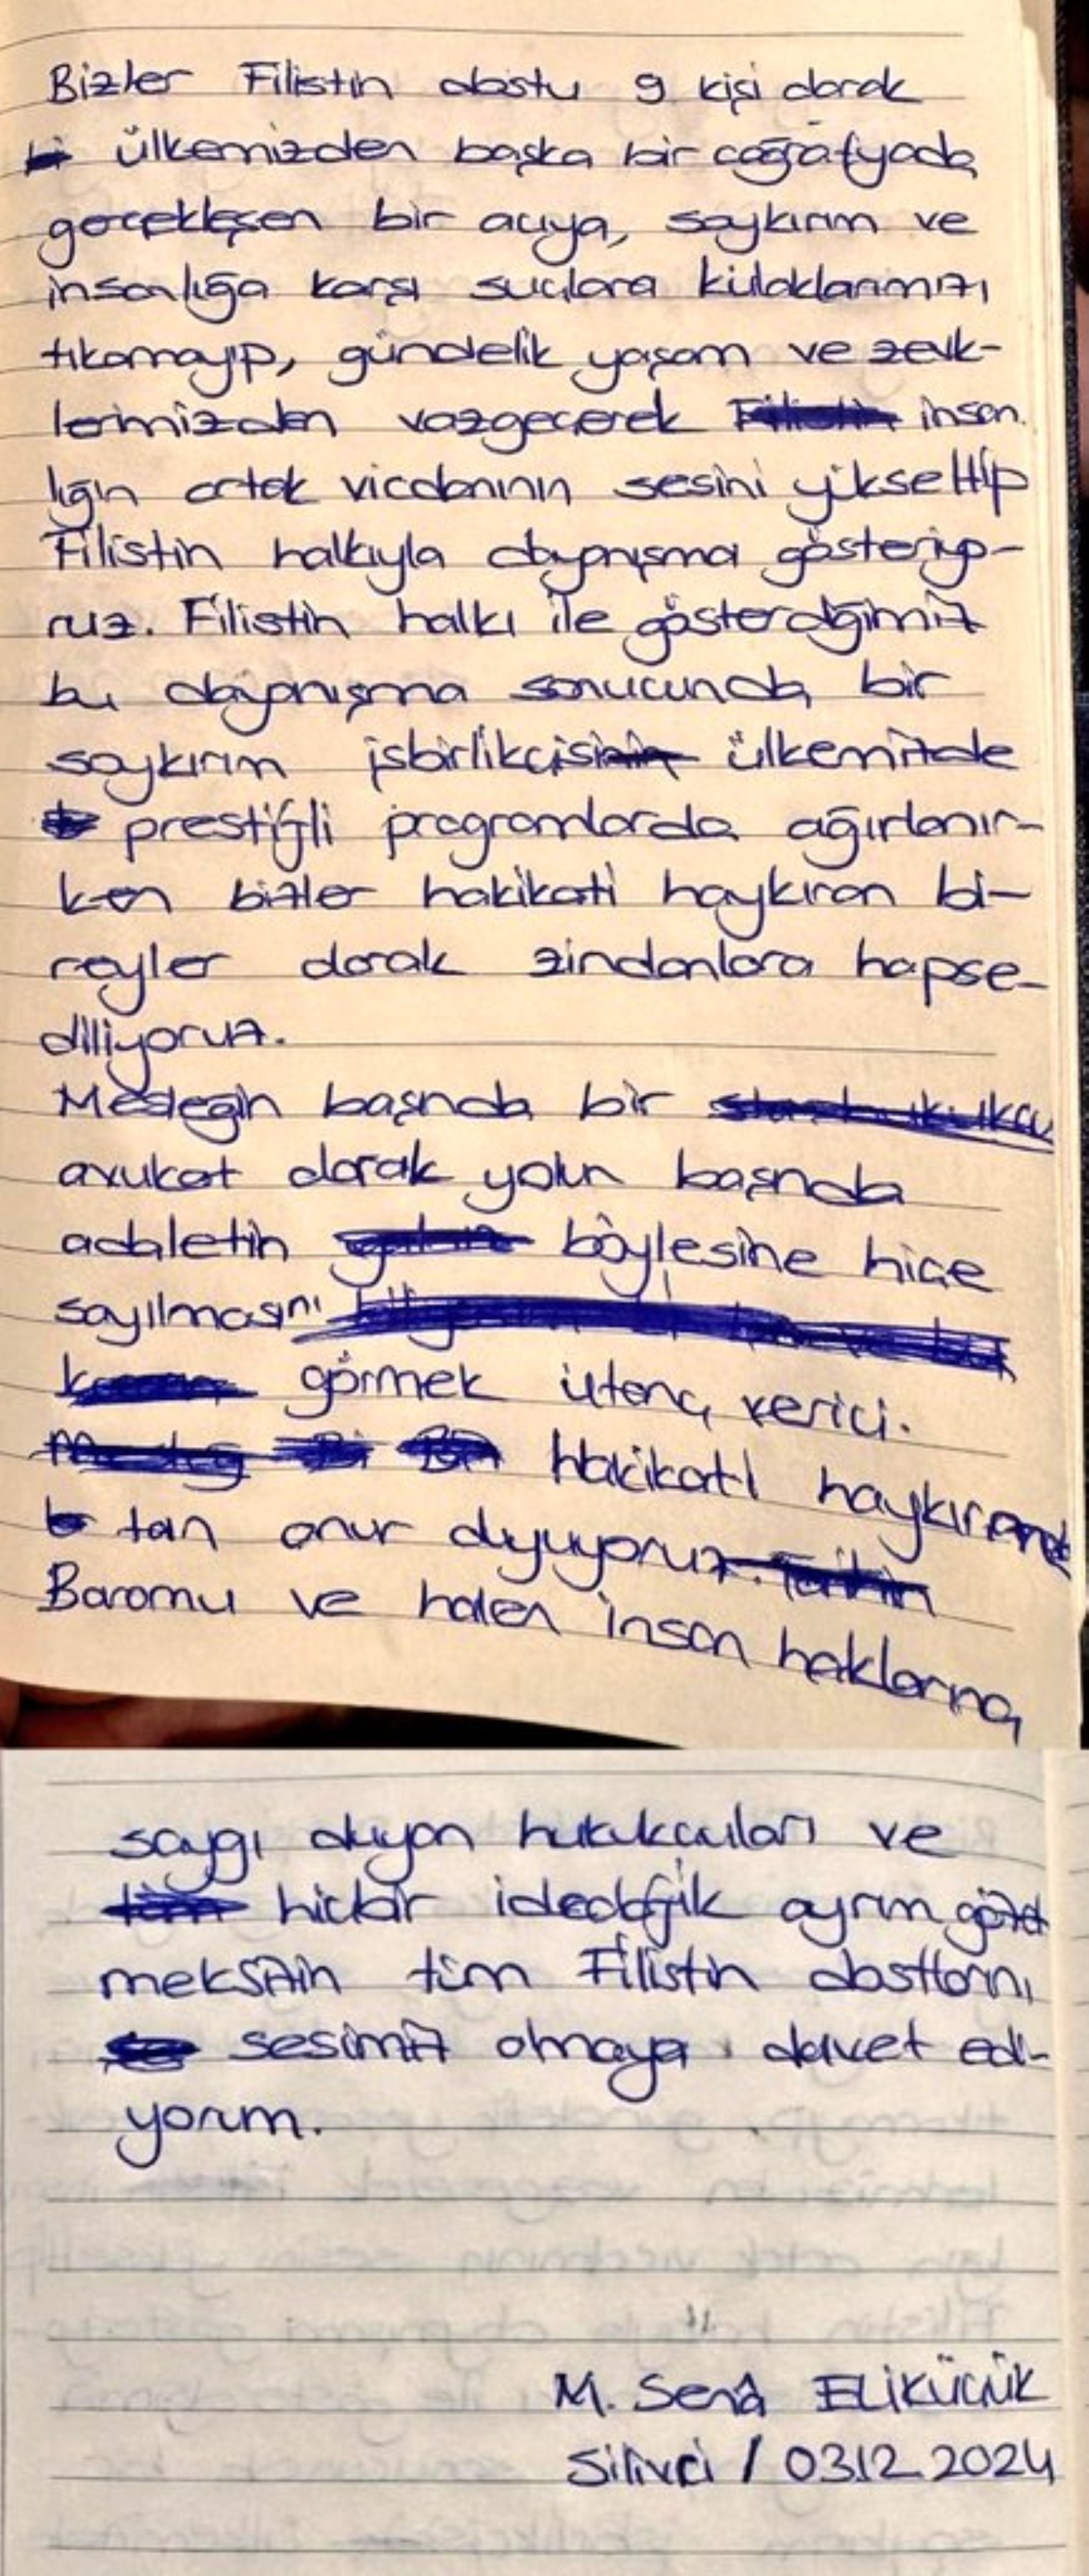 Bizler Filistin dostu 9 kişi olarak
ülkemizden başka bir coğrafyada
gerçekleşen bir acıya, soykırım ve
insanlığa karşı suçlara kulaklarımızı
tıkamayıp, gündelik yaşam ve zevk-
lerimizden vazgeçerek Filistin insan
lığın ortak vicdanının sesini yükseltip
Filistin halkıyla dayanışma gösteriyo-
ruz. Filistin halkı ile gösterdiğimiz
bu dayanışma sonucunda bir
soykırım işbirlikçisinin ülkemizde
prestijli programlarda ağırlanır-
ken bizler hakikati haykıran bi-
reyler olarak zindanlara hapse-
diliyoruz.
Mesleğin başında bir
avukat olarak yolun başında
adaletin böylesine hiçe
sayılmasını
görmek utanç verici.
Hakikati haykırmak
tan onur duyuyoruz. Tarihin
Baromu ve halen insan haklarına
saygı duyan hukukçuları ve
hiçbir ideolojik ayrım gözet
meksizin tüm Filistin dostlarını
sesimiz olmaya davet edi-
yorum.
M. Senâ ELİKÜÇÜK
Silivri / 03.12.2024